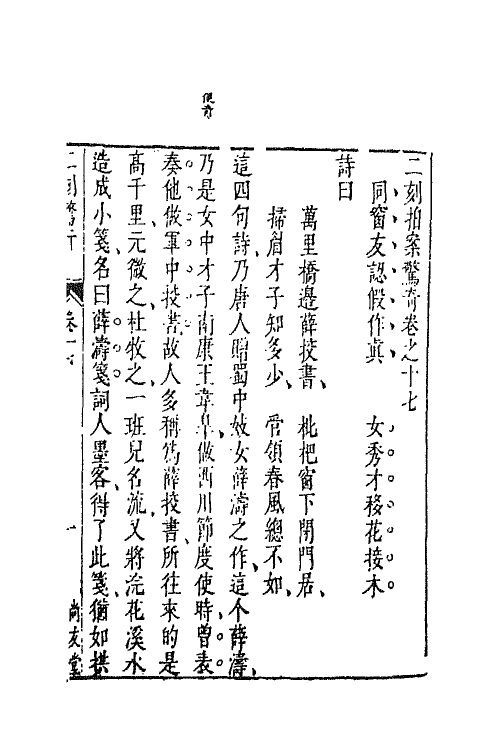 二刻拍案驚奇卷之十七
同窗友認假作真　女秀才移花接木
詩曰
萬里橋邊薛挍書　枇杷窗下閉門居
掃眉才子知多少　管領春風總不如
這四句詩乃唐人贈蜀中妓女薛濤之作這个薛濤
乃是女中才子南康王韋臯做西川節度使時曾表
奏他做軍中挍書故人多稱為薛挍書所往來的是
高千里元微之杜牧之一班兒名流又將浣花溪水
造成小箋名曰薛濤箋詞人墨客得了此箋猶如拱
二刻驚奇
卷十七
一
尚友堂